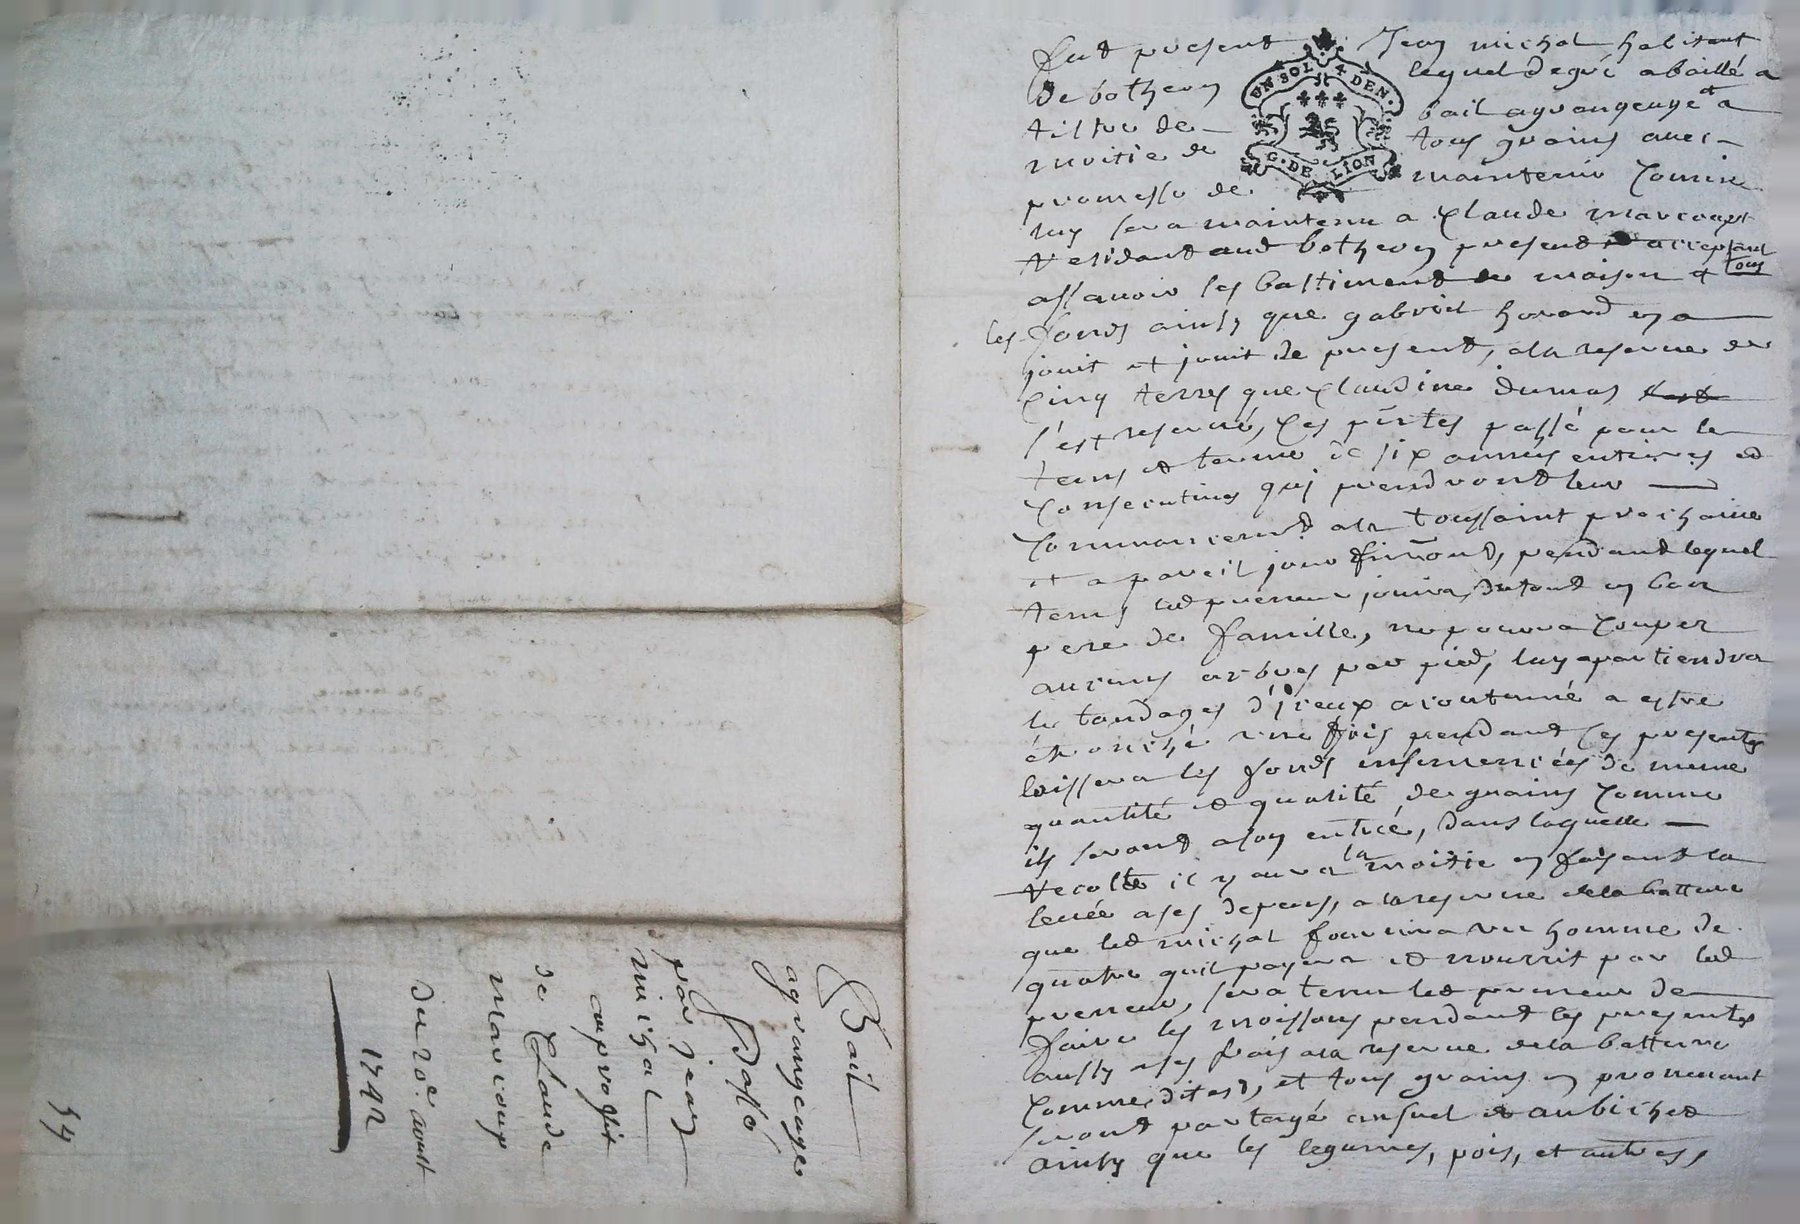 Bail
agrangeage
passé
par jean
michal
au proffit
de Claude
marcoup
du 20e. aoust
1742
54
UN SOL 4 DEN.
G. DE LION
fut present Jean michal habitant
de botheon lequel de gré a baillé a
tiltre de bail a grangeage et a
moitié de tous grains avec
promesse de maintenir comme
luy sera maintenu a Claude marcoupt
residant aud botheon present et acceptant
assavoir les battiments de maison et tous
les fonds ainsy que gabriel horard en a
jouit et jouit de present, a la reserve de
cinq terres que Claudine dumas
s'est reservé, Ces pñtes passé pour le
tems et terme de six années entieres et
consecutives qui prendront leur
commancemt. a la toussaint prochaine
et a pareil jour finiront, pendant lequel
tems led preneur jouira du tout en bon
pere de famille, ne pourra couper
aucuns arbres par pied, luy apartiendra
le tondages d'iceux acoutumé a estre
étronché une fois pendant les presentes
laissera les fonds ensemencées de meme
quantité et qualité de grains comme
ils seront a son entrée, dans laquelle
recolte il y aura la moitie en faisant la
levée a ses depens, a la reserve de la batture
que led michal fournira un homme de
quatre quil payera et nourrit par led
preneur, sera tenu led preneur de
faire les moissons pendant les presentes
aussy a ses frais a la reserve de la batture
comme dit est, et tous grains en provenant
seront partagé au suel et au bichet
ainsy que les legumes, pois, et autres,